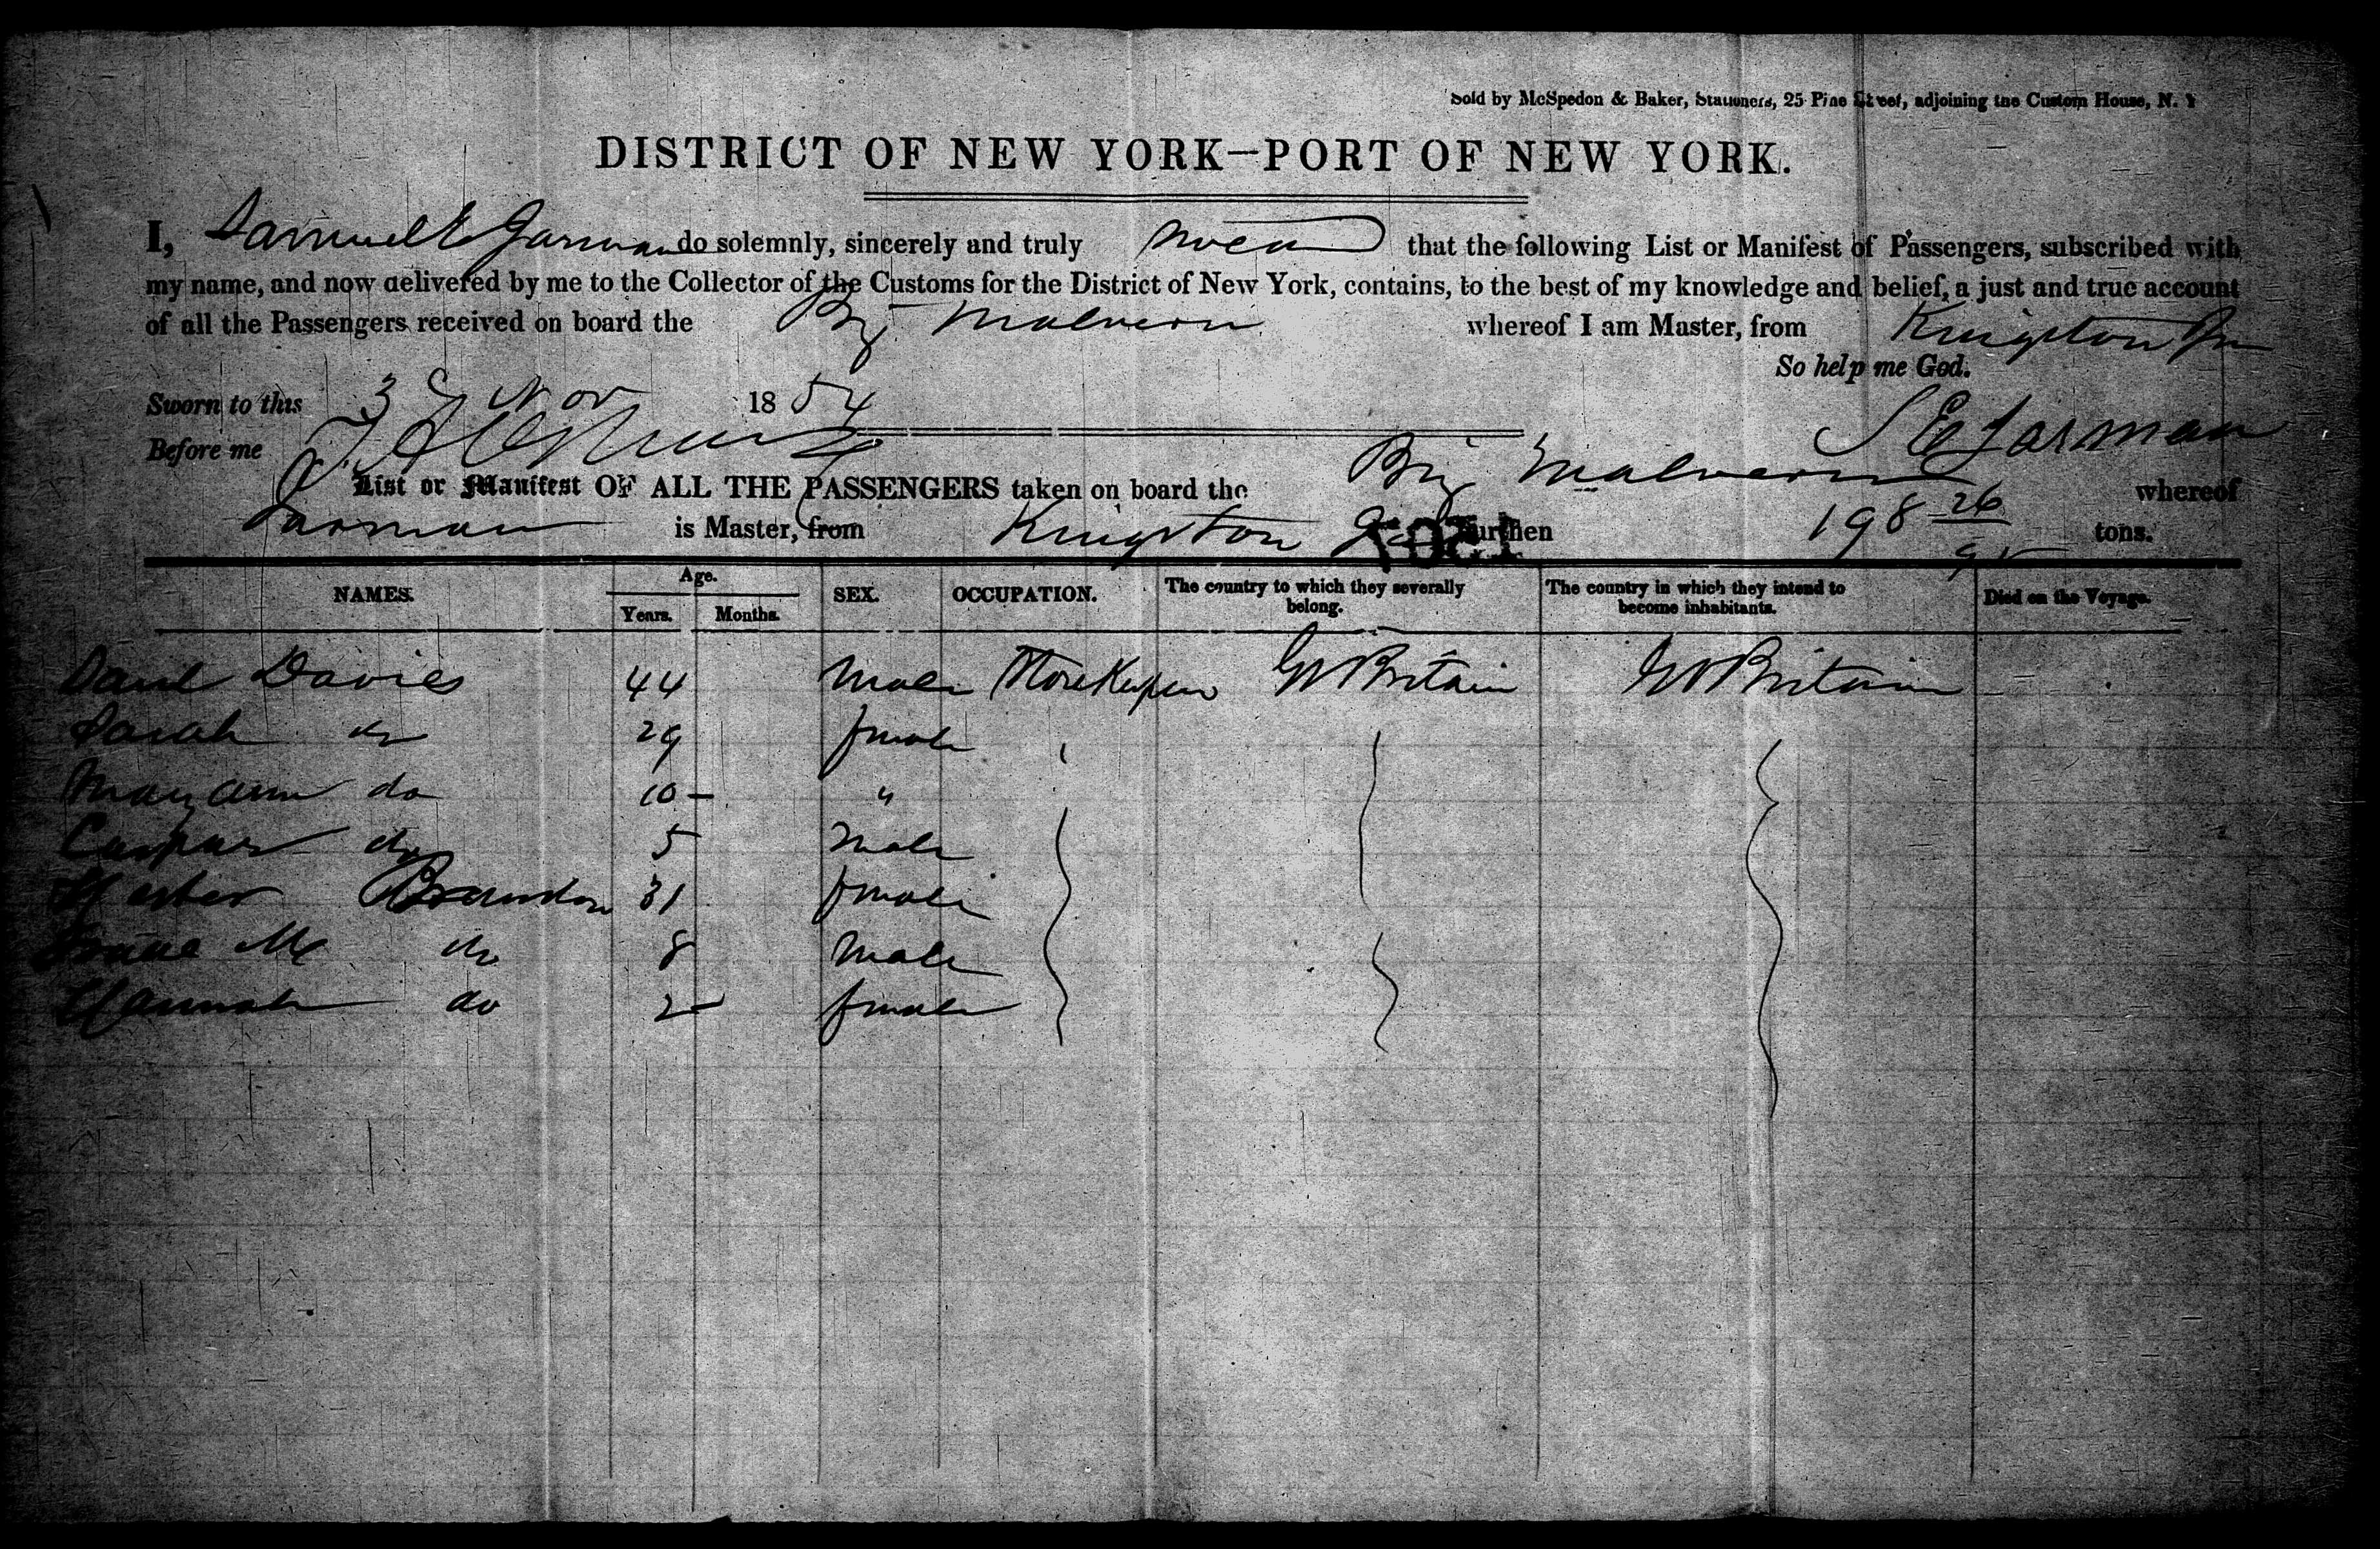 Sold by McSpedon & Baker, Stationers, 25 Pine Street, adjoining the Custom House, N. Y
DISTRICT OF NEW YORK—PORT OF NEW YORK.
I, Samuel E Jarman do solemnly, sincerely and truly swear that the following List or Manifest of Passengers, subscribed with
my name, and now delivered by me to the Collector of the Customs for the District of New York, contains, to the best of my knowledge and belief, a just and true account
of all the Passengers received on board the Brig Malvern whereof I am Master, from Kingston Jm
So help me God.
Sworn to this 3 Nov 1854
S E Jarman
Before me
List or Manifest OF ALL THE PASSENGERS taken on board the Brig Malvern whereof
Jarman is Master, from Kingston Ja burthen 198 26/95 tons.
NAMES. Age. SEX. OCCUPATION. The country to which they severally belong. The country in which they intend to become inhabitants. Died on the Voyage.
Years. Months.
Danl Davies 44 Male Storekeeper Gt Britain Gt Britain
Sarah do 29 female
Mary Ann do 10 - "
Caspar do 5 Male
Hester Brandon 31 female
Isaac M do 8 Male
Hannah do 2 - female